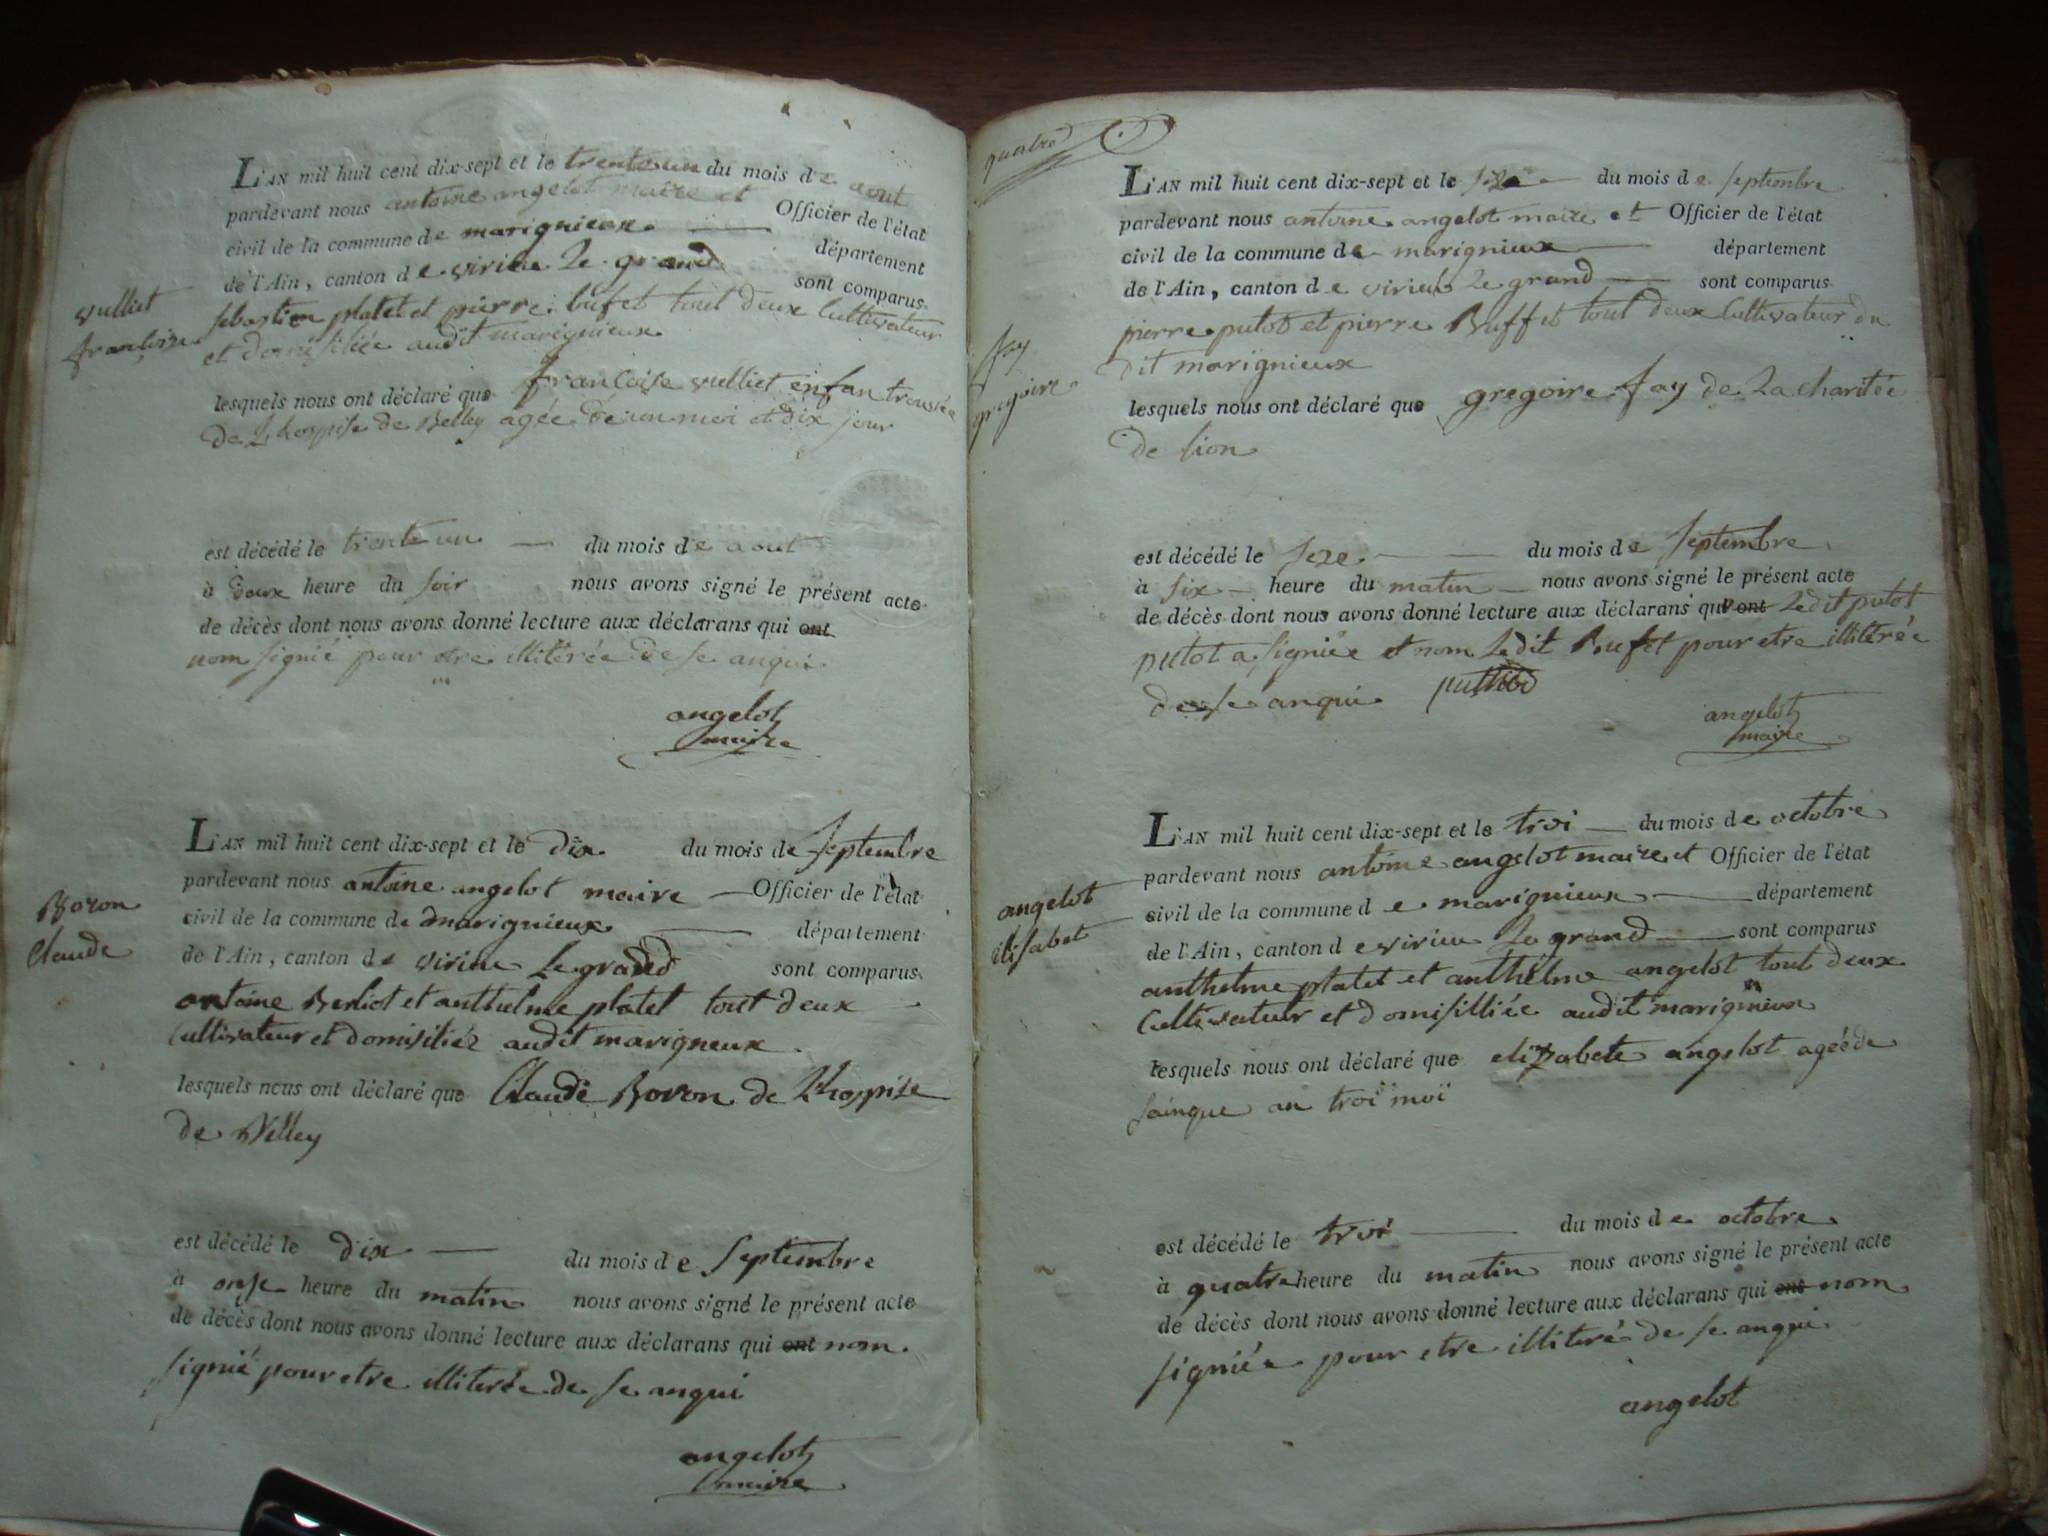 vulliet
françoise
L'AN mil huit cent dix-sept et le trente un du mois de aout
pardevant nous antoine angelot maire et Officier de l'état
civil de la commune de marignieux département
de l'Ain, canton de virieu Le grand sont comparus
sebastien platet et pierre bufet tout deux Cultivateur
et domisiliée audit marignieux
lesquels nous ont déclaré que françoise vulliet enfan trouvée
de L'hospise de Belley agée de un moi et dix jour
est décédé le trente un du mois de aout
à deux heure du soir nous avons signé le présent acte
de décès dont nous avons donné lecture aux déclarans qui ont
nom signié pour etre illiterée de se anqui
angelot
maire
Boron
Claude
L'AN mil huit cent dix-sept et le dix du mois de septembre
pardevant nous antoine angelot maire Officier de l'état
civil de la commune de marignieux département
de l'Ain, canton de virieu Le grand sont comparus
antoine Berliot et anthelme platet tout deux
Cultivateur et domisiliée audit marigneux
lesquels nous ont déclaré que Claude Boron de L'hospise
de Belley
est décédé le dix du mois de septembre
à onse heure du matin nous avons signé le présent acte
de décès dont nous avons donné lecture aux déclarans qui ont nom
signié pour etre illiterée de se anqui
angelot
maire
quatre
fay
gregoire
L'AN mil huit cent dix-sept et le seze du mois de septembre
pardevant nous antoine angelot maire et Officier de l'état
civil de la commune de marignieux département
de l'Ain, canton de virieu Le grand sont comparus
pierre putot et pierre Buffet tout deux Cultivateur du
dit marignieux
lesquels nous ont déclaré que gregoire fay de La charitée
de lion
est décédé le seze du mois de septembre
à six heure du matin nous avons signé le présent acte
de décès dont nous avons donné lecture aux déclarans qui ont Ledit putot
putot a signiée et nom Ledit Bufet pour etre illiterée
de se anqui
angelot
maire
angelot
elisabet
L'AN mil huit cent dix-sept et le troi du mois de octobre
pardevant nous antoine angelot maire et Officier de l'état
civil de la commune de marignieux département
de l'Ain, canton de virieu Le grand sont comparus
anthelme platet et anthelme angelot tout deux
Cultivateur et domisilliée audit marignieux
lesquels nous ont déclaré que elizabete angelot agéé de
sainque an troi moi
est décédé le troi du mois de octobre
à quatre heure du matin nous avons signé le présent acte
de décès dont nous avons donné lecture aux déclarans qui ont nom
signiée pour etre illiteré de se anqui
angelot